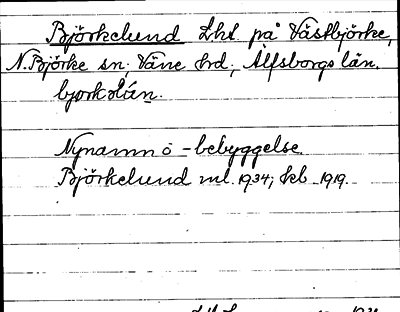 Björkelund Lht. på Västbjörke,
N. Björke sn; Väne hd; Älfsborgs län.
Nynamn o - bebyggelse
Björkelund ml. 1934; kb 1919.